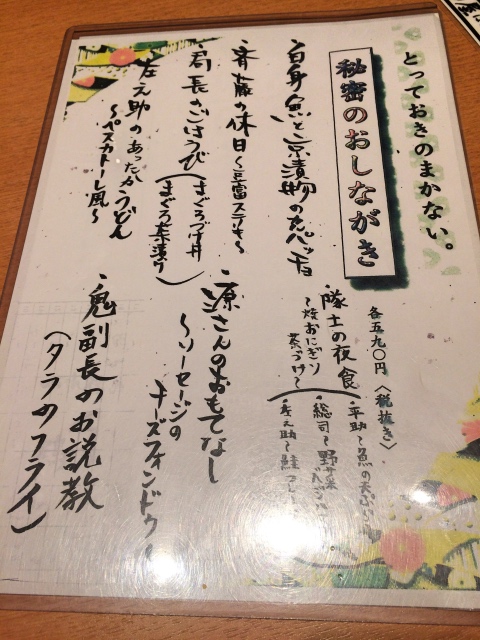 とっておきのまかない。
秘密のおしながき
各五九〇円〈税抜き〉
・隊士の夜食
〜焼おにぎり
茶づけ〜
平助〜魚の
総司〜野菜
左之助〜鮭
・白身魚と京漬物のカルパッチョ
・斉藤の休日〜豆富ステーキ〜
・局長のごほうび
(まぐろづけ丼
まぐろ茶漬け)
・左之助のあったかうどん
〜ペスカトーレ風〜
・源さんのおもてなし
〜ソーセージの
チーズフォンデュ〜
・鬼副長のお説教
(タラのフライ)